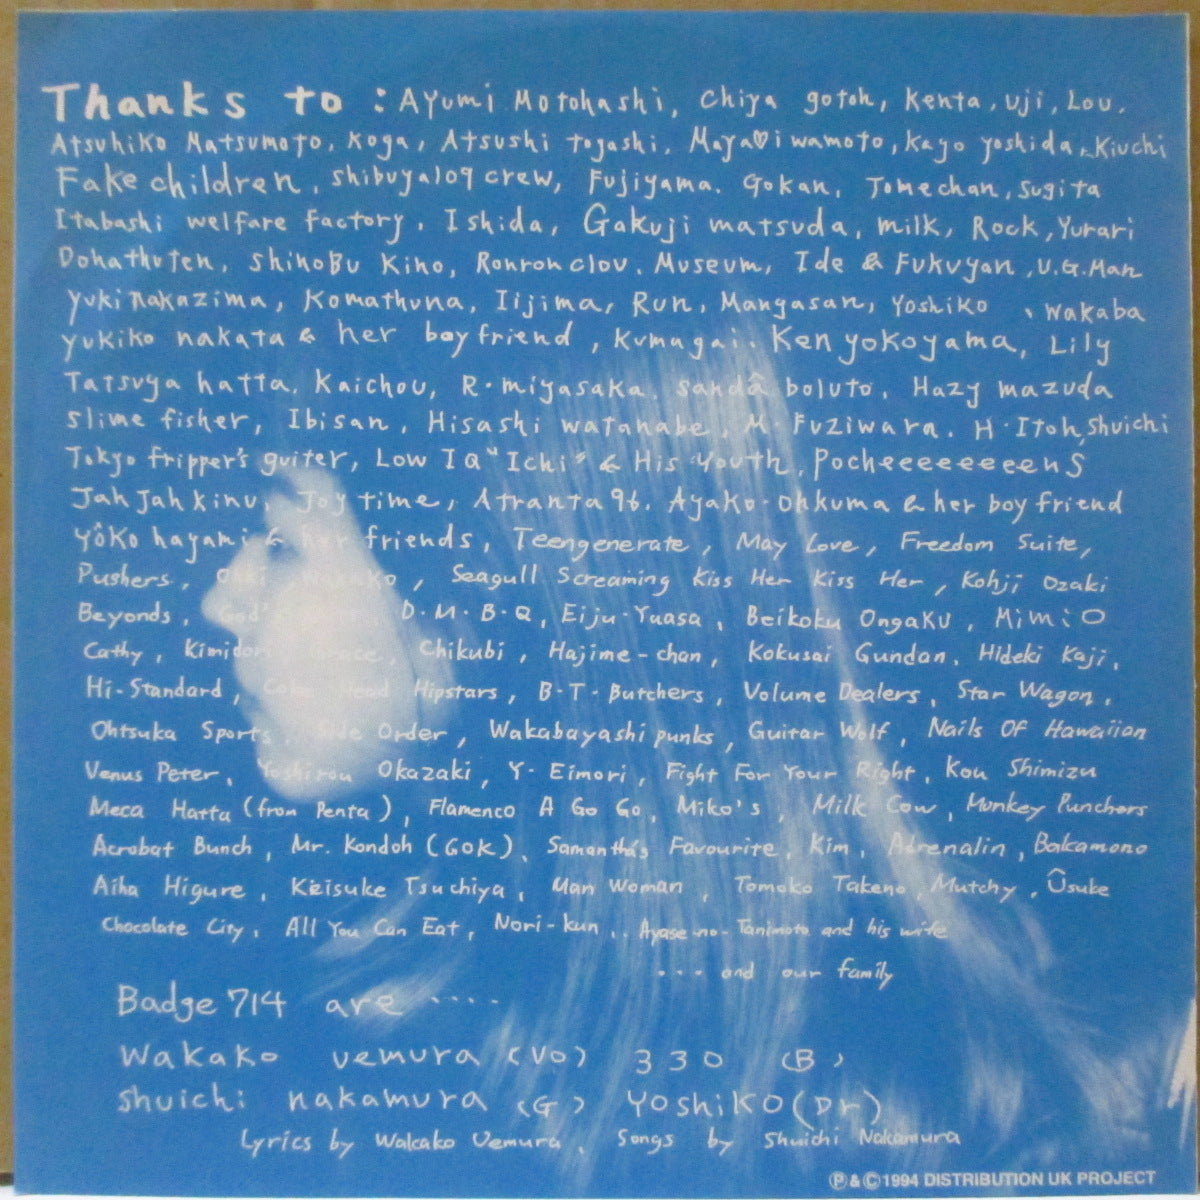 Thanks to : Ayumi Motohashi, Chiya gotoh, Kenta, Uji, Lou,
Atsuhiko Matsumoto, Koga, Atsushi togashi, Maya♡iwamoto, Kayo yoshida, Kiuchi
Fake children, Shibuya109 crew, Fujiyama. Gokan, Tomechan, Sugita
Itabashi welfare factory, Ishida, Gakuji matsuda, milk, Rock, Yurari
Dohathuten, Shinobu Kino, Ronron clou, Museum, Ide & Fukuyan, U.G.Man
Yuki nakazima, Komathuna, Iijima, Run, Mangasan, Yoshiko, Wakaba
yukiko nakata & her boyfriend, Kumagai. Ken yokoyama, Lily
Tatsuya hatta. Kaichou, R・miyasaka, sandâ boluto, Hazy mazuda
Slime fisher, Ibisan, Hisashi watanabe, M・Fuziwara. H・Itoh, Shuichi
Tokyo fripper's guiter, Low IQ "Ichi" & His Youth, Pocheeeeeeeeens
Jah Jah kinu, Joy time, Atranta 96. Ayako・Ohkuma & her boy friend
Yôko hayami & her friends, Teengenerate, May Love, Freedom Suite,
Pushers, Nakako, Seagull Screaming Kiss Her Kiss Her, Kohji Ozaki
Beyonds, God's D・M・B・Q, Eiju・Yuasa, Beikoku Ongaku, Mimio
Cathy, Kimidori, Grace, Chikubi, Hajime-chan, Kokusai Gundan, Hideki Kaji,
Hi-Standard, Coke Head Hipstars, B・T・Butchers, Volume Dealers, Star Wagon,
Ohtsuka Sports, Side Order, Wakabayashi punks, Guitar Wolf, Nails Of Hawaiian
Venus Peter, Yoshirou Okazaki, Y・Eimori, Fight For Your Right, Kou Shimizu
Meca Hatta (from Penta), Flamenco A Go Go, Miko's, Milk Cow, Monkey Punchers
Acrobat Bunch, Mr. Kondoh (GOK), Samantha's Favourite, Kim, Adrenalin, Bakamono
Aiha Higure, Keisuke Tsuchiya, Man Woman, Tomoko Takeno, Mutchy, Ûsuke
Chocolate City, All You Can Eat, Nori-kun, .. Ayase-no-Tanimoto and his wife
・・・ and our family
Badge 714 are ・・・・
Wakako Uemura (Vo) 330 (B)
Shuichi nakamura (G) Yoshiko (Dr)
Lyrics by Wakako Uemura, Songs by Shuichi Nakamura
Ⓟ&©1994 DISTRIBUTION UK PROJECT